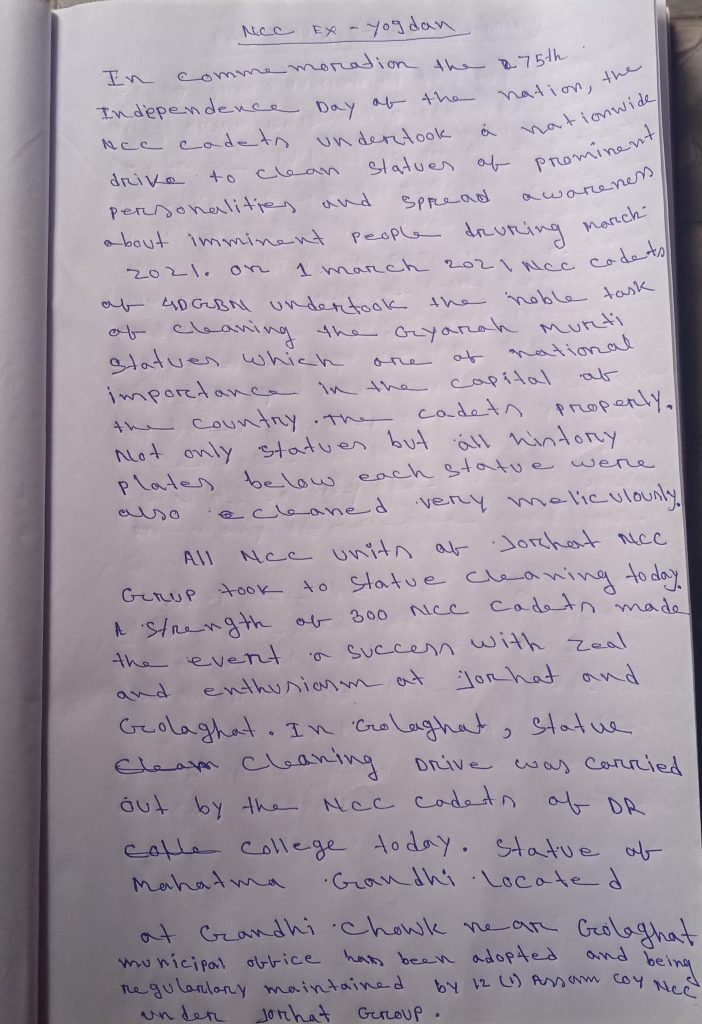 NCC EX - Yogdan
In commemoration the 75th
Independence Day of the nation, the
NCC cadets undertook a nationwide
drive to clean statues of prominent
personalities and spread awareness
about imminent people druring march
2021. on 1 march 2021 NCC cadets
of 4DGBN undertook the noble task
of cleaning the Gyarah Murti
statues which are of national
importance in the capital of
the country. The cadets properly.
Not only statues but all history
plates below each statue were
also cleaned very meliculously.
All NCC units of Jorhat NCC
Grrup took to statue cleaning today.
A strength of 300 NCC cadets made
the event a success with zeal
and enthusiasm at jorhat and
Golaghat. In Golaghat, statue
Cleaning Drive was carried
out by the NCC cadets of DR
college today. Statue of
Mahatma Gandhi located
at Gandhi chowk near Golaghat
municipal office has been adopted and being
regularlary maintained by 12 (1) Assam Coy NCC
under Jorhat Group.